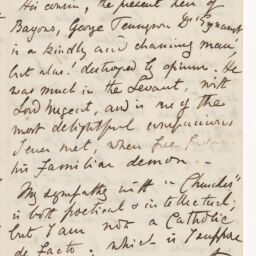 His cousin, the present heir of
Bayons, George Tennyson D'Eyncourt
is a kindly and charming man,
but alas! destroyed by opium. He
was much in the Levant, with
Lord Nugent, and is one of the
most delightful companions
I ever met, when free from
his familiar demon. -
My sympathy with "Churches"
is both poetical & intellectual;
but I am not a Catholic
de facto: which is I suppose